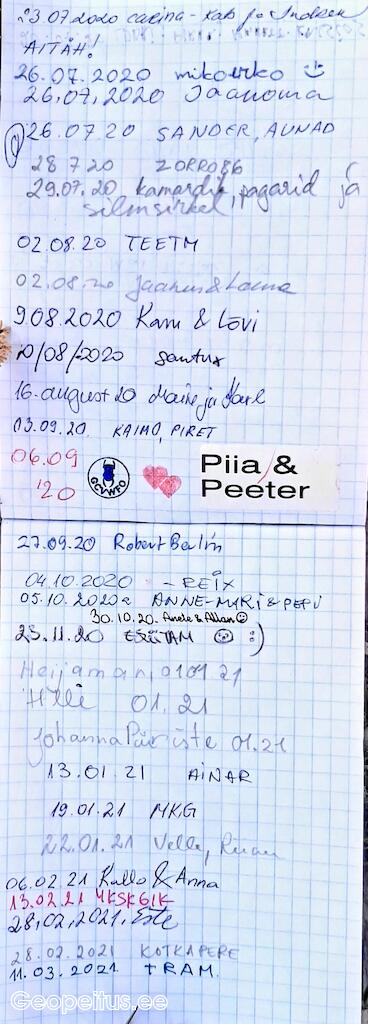 23.07.2020 carina - Kati ja Indrek
AITÄH!
26.07.2020 mikovrko
26,07,2020 Jaanoma
26.07.20 SANDER, AUNAD
28 7 20 ZORRO86
29.07.20 kamardik, pagarid ja
silmsirkel
02.08.20 TEETM
02.08.20 Jaanus & Laura
9.08.2020 Karu & Lõvi
10/08/2020 Santux
16. august 20 Maire ja Karl
13.09.20. KAIMO, PIRET
06.09
'20
GCVWFO
Piia &
Peeter
27.09.20 Robert Berliin
04.10.2020 - REIX
05.10.2020a ANNE-MARI & PEPU
30.10.20. Anete & Allan
23.11.20 :)
01 01 21
Hlli 01.21
Johanna 01.21
13.01.21 AINAR
19.01.21 MKG
22.01.21
06.02.21 Kallo & Anna
13.02.21 MKSKGIK
28,02,2021, Este
28.02.2021 KOTKAPERE
11.03.2021 TRAM.
Geopeitus.ee